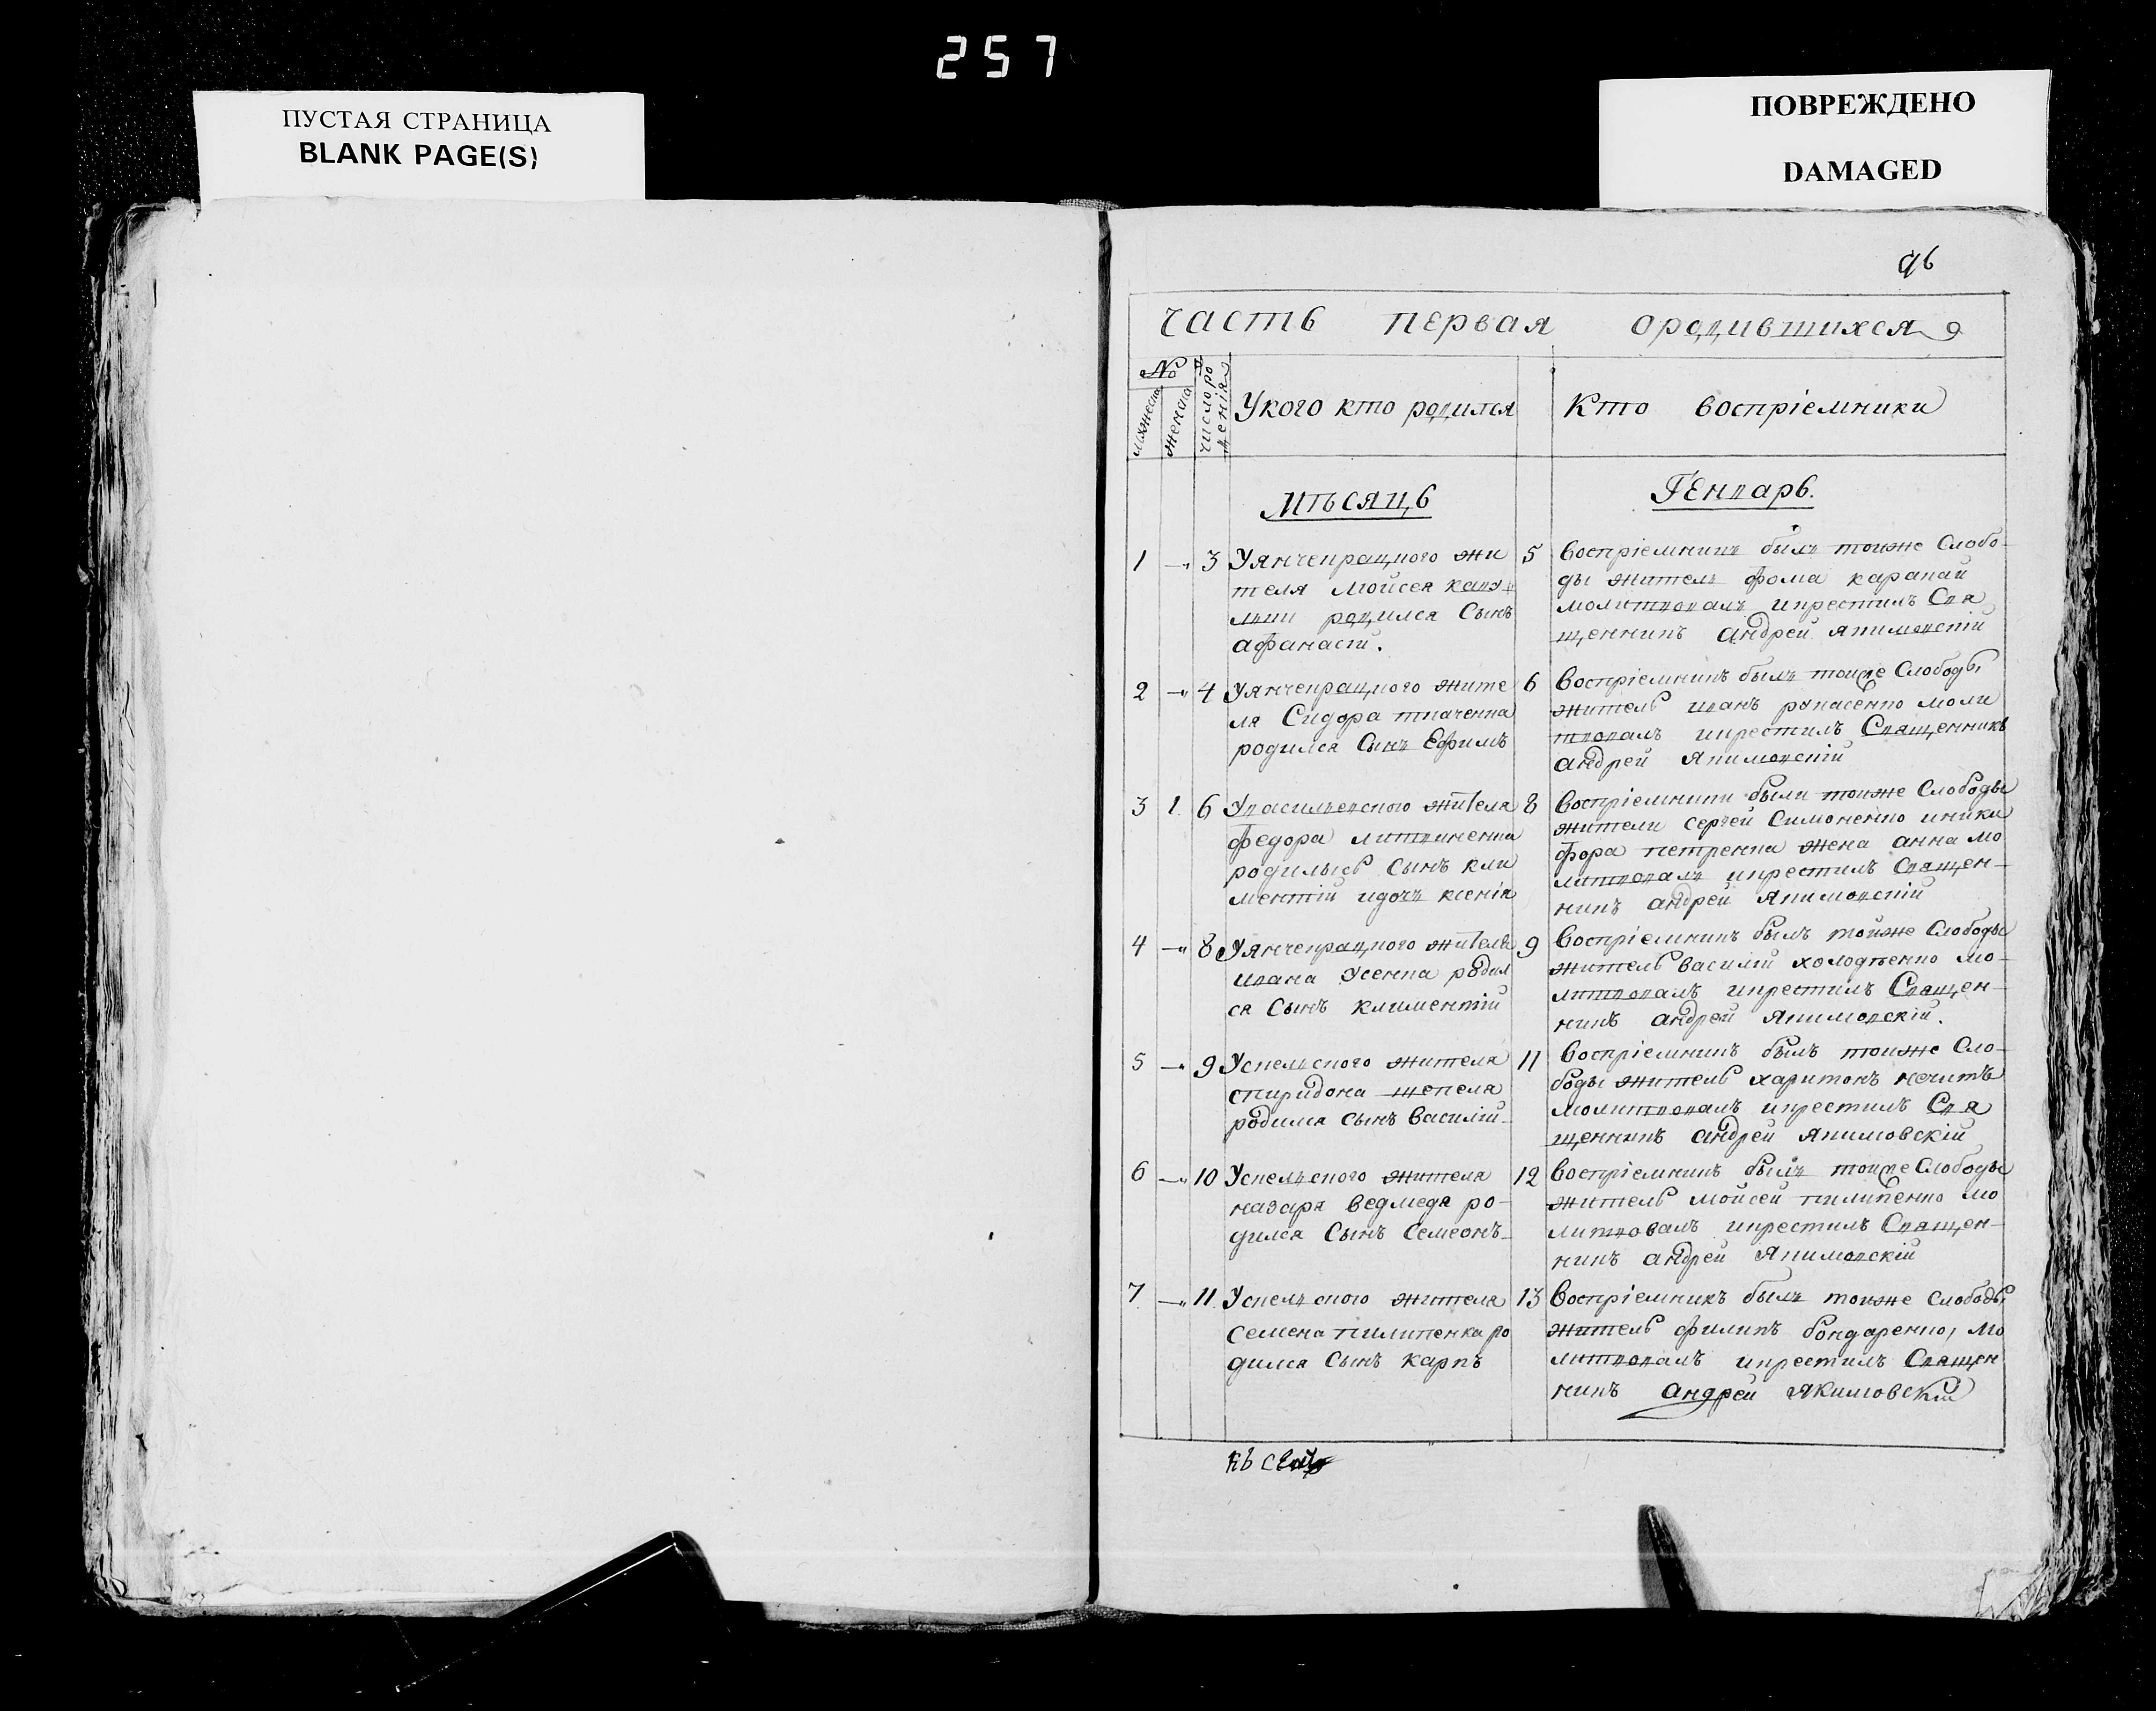 257
ПУСТАЯ СТРАНИЦА
BLANK PAGE(S)
ПОВРЕЖДЕНО
DAMAGED
96
часть первая ородившихся
№
мужеска
женска
число ро
денія
Укого кто родился
Кто воспріемники
Мѣсяцъ
Генварь.
1 3 Уянчекрацкого жи
теля Мойсея
родился Сынъ
афанасій.
5 воспріемникъ былъ тоиже Слобо-
ды житель фома
молитвовалъ икрестилъ Свя
щенникъ андрей якимовскій
2 4 Уянчекрацкого жите
ля Сидора ткаченка
родился Сынъ Ефимъ
6 воспріемникъ былъ тоиже Слободы
житель иванъ моли
твовалъ икрестилъ Священникъ
андрей якимовскій
3 1. 6 Увасильевского жителя
федора литвиненка
родились Сынъ кли
ментій идочь ксенія
8 воспріемники были тоиже Слободы
жители сергей Симоненко иники
фора петренка жена анна мо
литвовалъ икрестилъ Священ-
никъ андрей якимовскій
4 8 Уянчекрацкого жителя
ивана усенка родил
ся Сынъ климентій
9 воспріемникъ былъ тойже Слободы
житель василій холодненко мо-
литвовалъ икрестилъ Священ-
никъ андрей якимовскій.
5 9 Успельского жителя
спиридона щепеля
родился сынъ василій
11 воспріемникъ былъ тоиже Сло-
боды житель харитонъ
молитвовалъ икрестилъ Свя
щенникъ андрей якимовскій
6 10 Успельского жителя
назаря ведмедя ро-
дился Сынъ Семеонъ
12 воспріемникъ былъ тоиже Слободы
житель мойсей пилипенко мо
литвовалъ икрестилъ Священ-
никъ андрей якимовскій
7 11 Успельского жителя
семена пилипенка ро
дился Сынъ карпъ
13 воспріемникъ былъ тоиже слободы
житель филипъ бондаренко, мо
литвовалъ икрестилъ Священ
никъ андрей якимовскій
къ сей